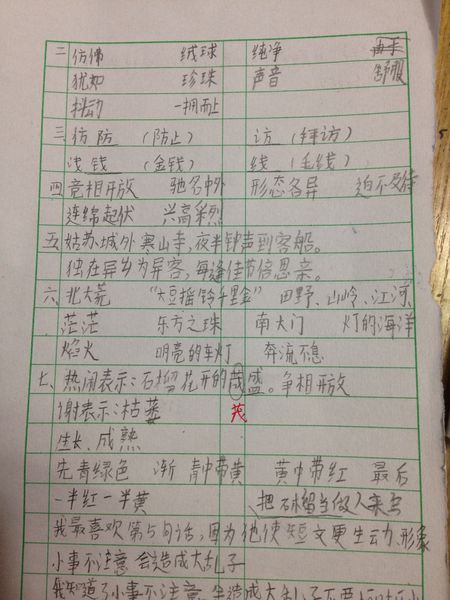 二 仿佛 绒球 纯净
犹如 珍珠 声音 舒服
抖动 一拥而上
三 仿 防 (防止) 访 (拜访)
浅 钱 (金钱) 线 (毛线)
四 竞相开放 驰名中外 形态各异 迫不及待
连绵起伏 兴高彩烈
五 姑苏城外寒山寺,夜半钟声到客船。
独在异乡为异客,每逢佳节倍思亲。
六 北大荒 "大豆摇铃千里金" 田野、山岭、江河
茫茫 东方之珠 南大门 灯的海洋
焰火 明亮的车灯 奔流不息
七、热闹表示:石榴花开的茂盛。争相开放
谢表示:枯萎 茂
生长、成熟
先青绿色 渐 青中带黄 黄中带红 最后
一半红一半黄 把石榴当做人来写
我最喜欢第5句话,因为他使短文更生动、形象
小事不注意会造成大乱子
我知道了小事不注意,会造成大乱子不要